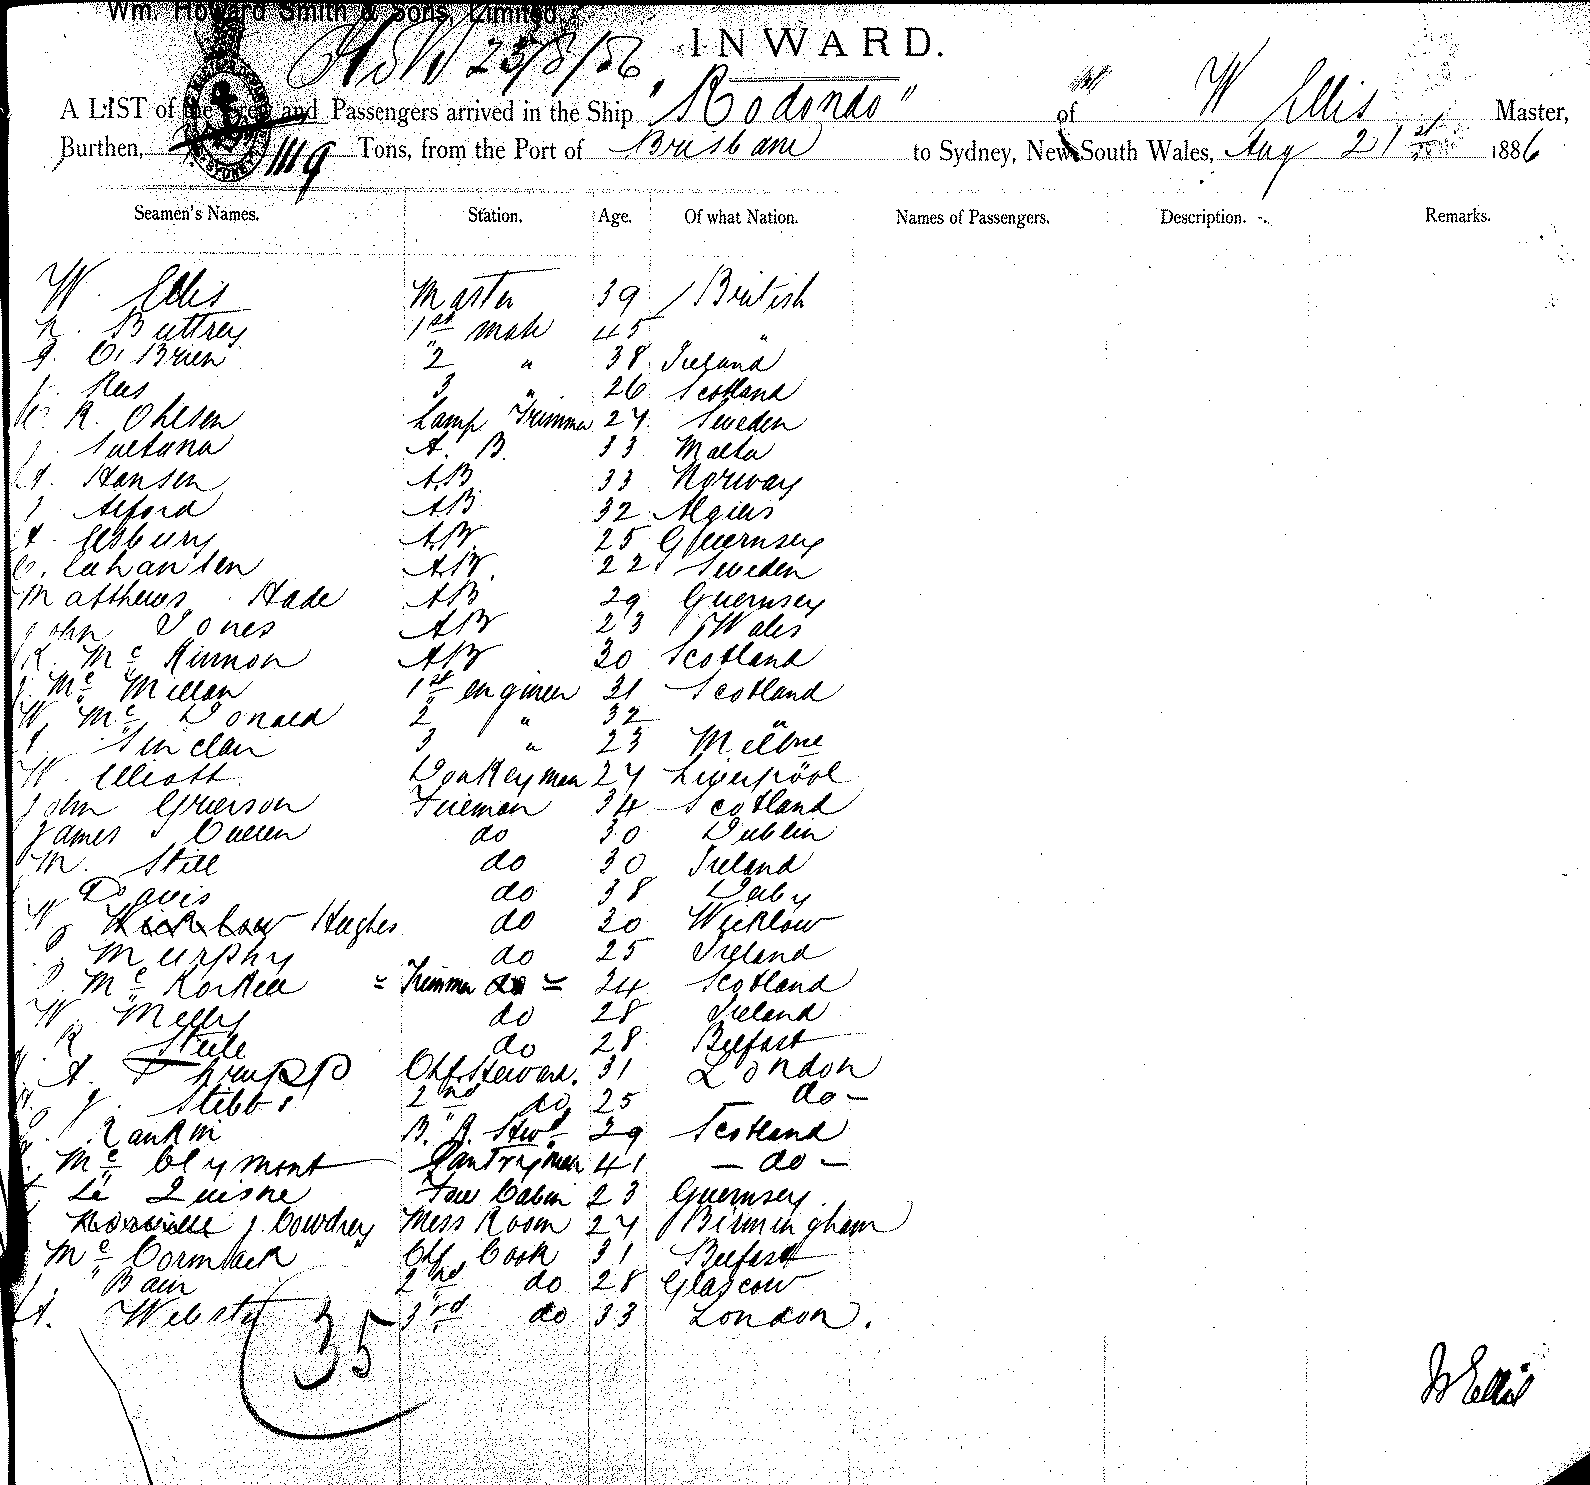 Wm. Howard Smith & Sons, Limited.
INWARD.
A LIST of the Crew and Passengers arrived in the Ship "Rodondo" of W Ellis Master,
Burthen, Tons, from the Port of Brisbane to Sydney, New South Wales, Aug 21st 1886
Seamen's Names. Station. Age. Of what Nation. Names of Passengers. Description. Remarks.
W. Ellis Master 39 British
Buttrey 1st mate 45 "
O'Brien 2 " 38 Ireland
Rees 3 " 26 Scotland
R. Ohlsen Lamp Trimmer 27 Sweden
Sultana A. B. 33 Malta
Hansen AB 33 Norway
Alford AB 32 Algiers
AB. 25 Guernsey
AB. 22 Sweden
Matthews Hade AB 29 Guernsey
John Jones AB 23 Wales
Mc Kinnon AB 30 Scotland
J. Mc Millan 1st engineer 31 Scotland
W. Mc Donald 2 " 32 "
Sinclair 3 " 23 Melbne
W. Elliott Donkeyman 27 Liverpool
John Grierson Fireman 34 Scotland
James Cullen do 30 Dublin
M. Still do 30 Ireland
Davis do 38 Derby
W Hughes do 30 Wicklow
Murphy do 25 Ireland
Mc Korkell = Trimmer do = 24 Scotland
W. Melly do 28 Ireland
R Steele do 28 Belfast
A. Thrupp Chf. Steward. 31 London
J. Stibbs 2nd do 25 - do -
Rankin B. R. Stwd 29 Scotland
Mc Clymont Pantryman 41 - do -
Le Quesne Fore Cabin 23 Guernsey.
J. Cowdrey Mess Room 27 Birmingham
Mc Cormack Chf Cook 31 Belfast
Bain 2nd do 28 Glascow
A. Webster 3rd do 33 London.
35
W Ellis